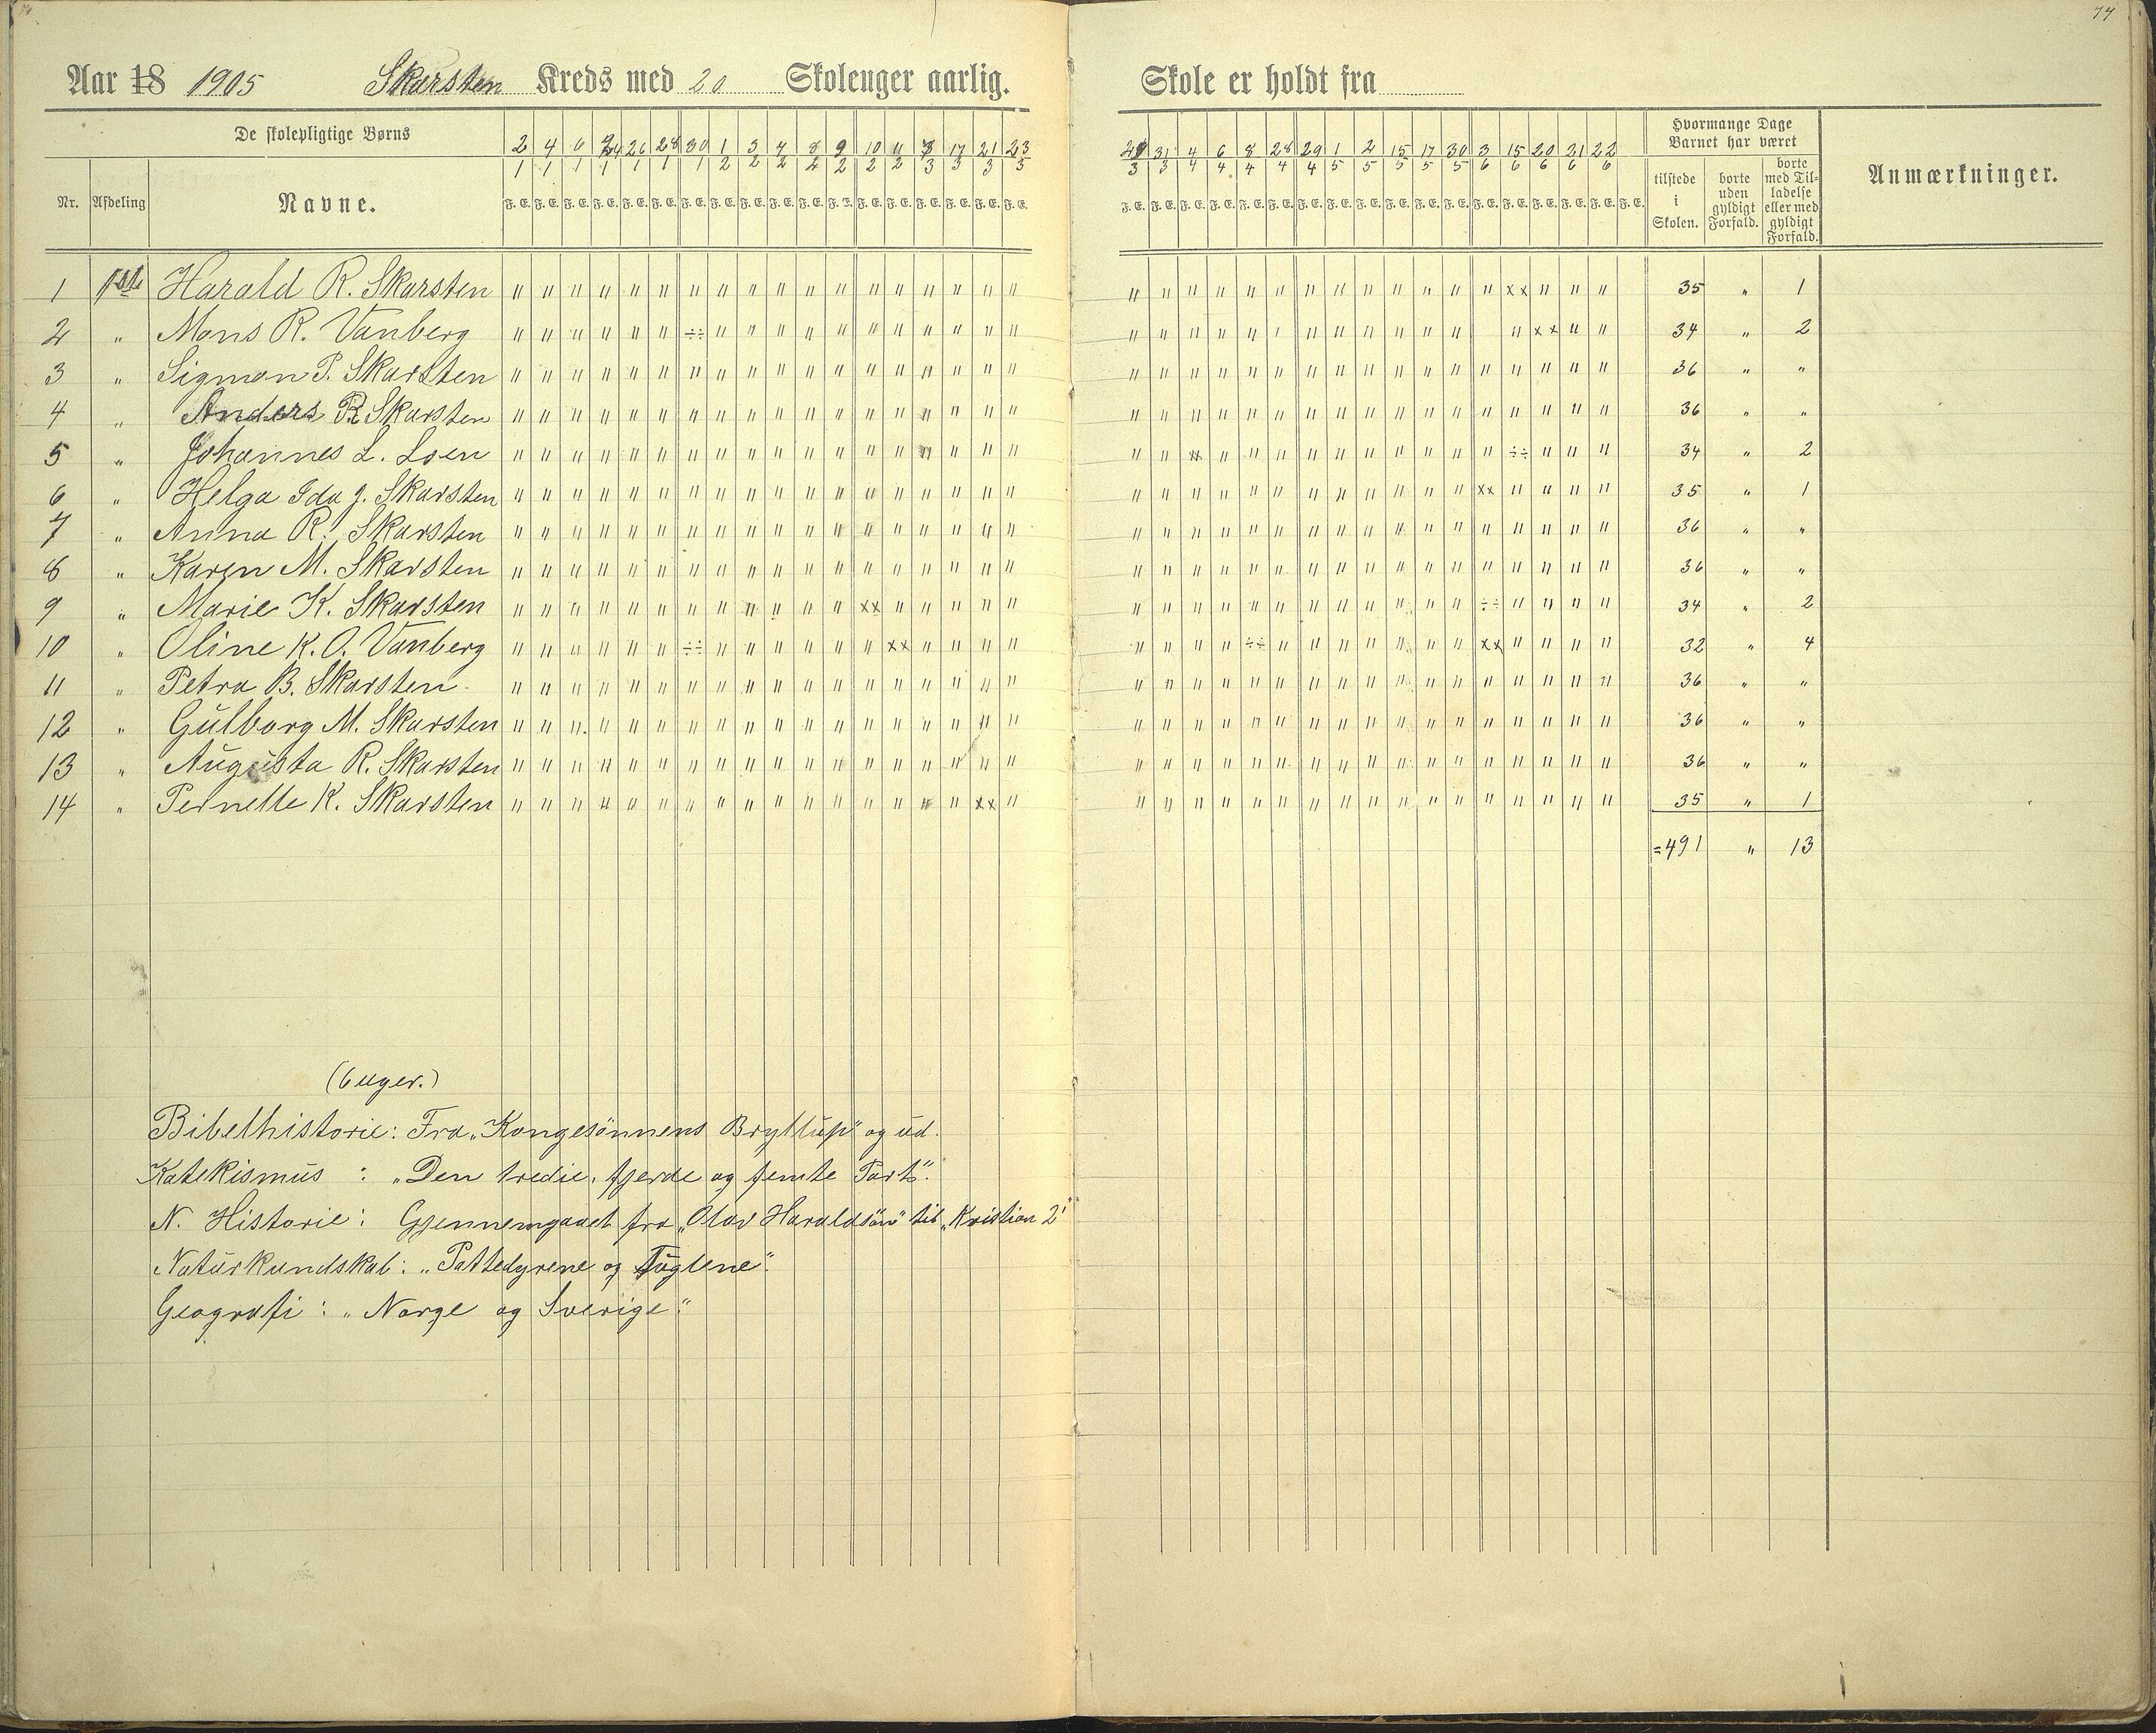 77
Aar 18 1905 Skarsten Kreds med 20 Skoleuger aarlig. Skole er holdt fra
De skolepligtige Børns
Nr. Afdeling Navne.
2 4 6 24 26 28 30 1 3 7 8 9 10 11 3 17 21 23
1 1 1 1 1 1 1 2 2 2 2 2 2 2 3 3 3 3
F. E. F. E. F. E. F. E. F. E. F. E. F. E. F. E. F. E. F. E. F. E. F. E. F. E. F. E. F. E. F. E. F. E. F. E.
31 4 6 8 28 29 1 2 15 17 30 3 15 20 21 22
3 3 4 4 4 4 4 5 5 5 5 5 6 6 6 6 6
F. E. F. E. F. E. F. E. F. E. F. E. F. E. F. E. F. E. F. E. F. E. F. E. F. E. F. E. F. E. F. E. F. E. F. E.
Hvormange Dage
Barnet har været
tilstede
i
Skolen.
borte
uden
gyldigt
Forfald.
borte
med Til-
ladelse
eller med
gyldigt
Forfald.
Anmærkninger.
1 1ste Harald R. Skarsten 35 " 1
2 " Mons R. Vanberg 34 " 2
3 " Sigmon P. Skarsten 36 " "
4 " Anders R. Skarsten 36 " "
5 " Johannes L. Loen 34 " 2
6 " Helga Ida J. Skarsten 35 " 1
7 " Anna R. Skarsten 36 " "
8 " Karen M. Skarsten 36 " "
9 " Marie K. Skarsten 34 " 2
10 " Oline K. O. Vanberg 32 " 4
11 " Petra B. Skarsten 36 " "
12 " Gulborg M. Skarsten 36 " "
13 " Augusta R. Skarsten 36 " "
14 " Pernelle K. Skarsten 35 " 1
=491 " 13
(6 uger.)
Bibelhistorie: Fra „Kongesønnens Bryllup" og ud.
Katekismus : „Den tredie, fjerde og femte Part".
N. Historie: Gjennemgaaet fra „Olav Haraldsøn" til „Kristian 2"
Naturkundskab: „Pattedyrene og Fuglene".
Geografi : „Norge og Sverige".